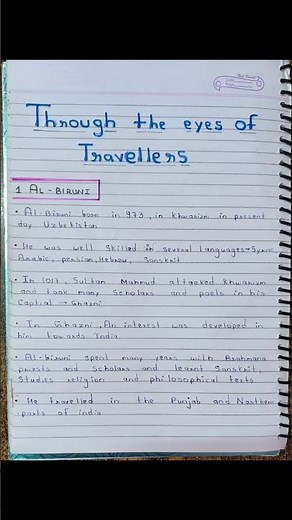 Through the eyes of
Travellers
1 AL-BIRUNI
• Al-Biruni born in 973, in Khwarizm in present
day Uzbekistan
• He was well skilled in several languages → Syriac
Arabic, persian, Hebrew, Sanskrit
• In 1017, Sultan Mahmud attacked Khwarizm
and took many Scholars and poets in his
Capital → Ghazni
• In Ghazni, An interest was developed in
him towards India
• Al-biruni spent many years with Brahmana
priests and scholars and learnt Sanskrit,
Studies religion and philosophical texts
• He travelled in the Punjab and Northern
parts of india